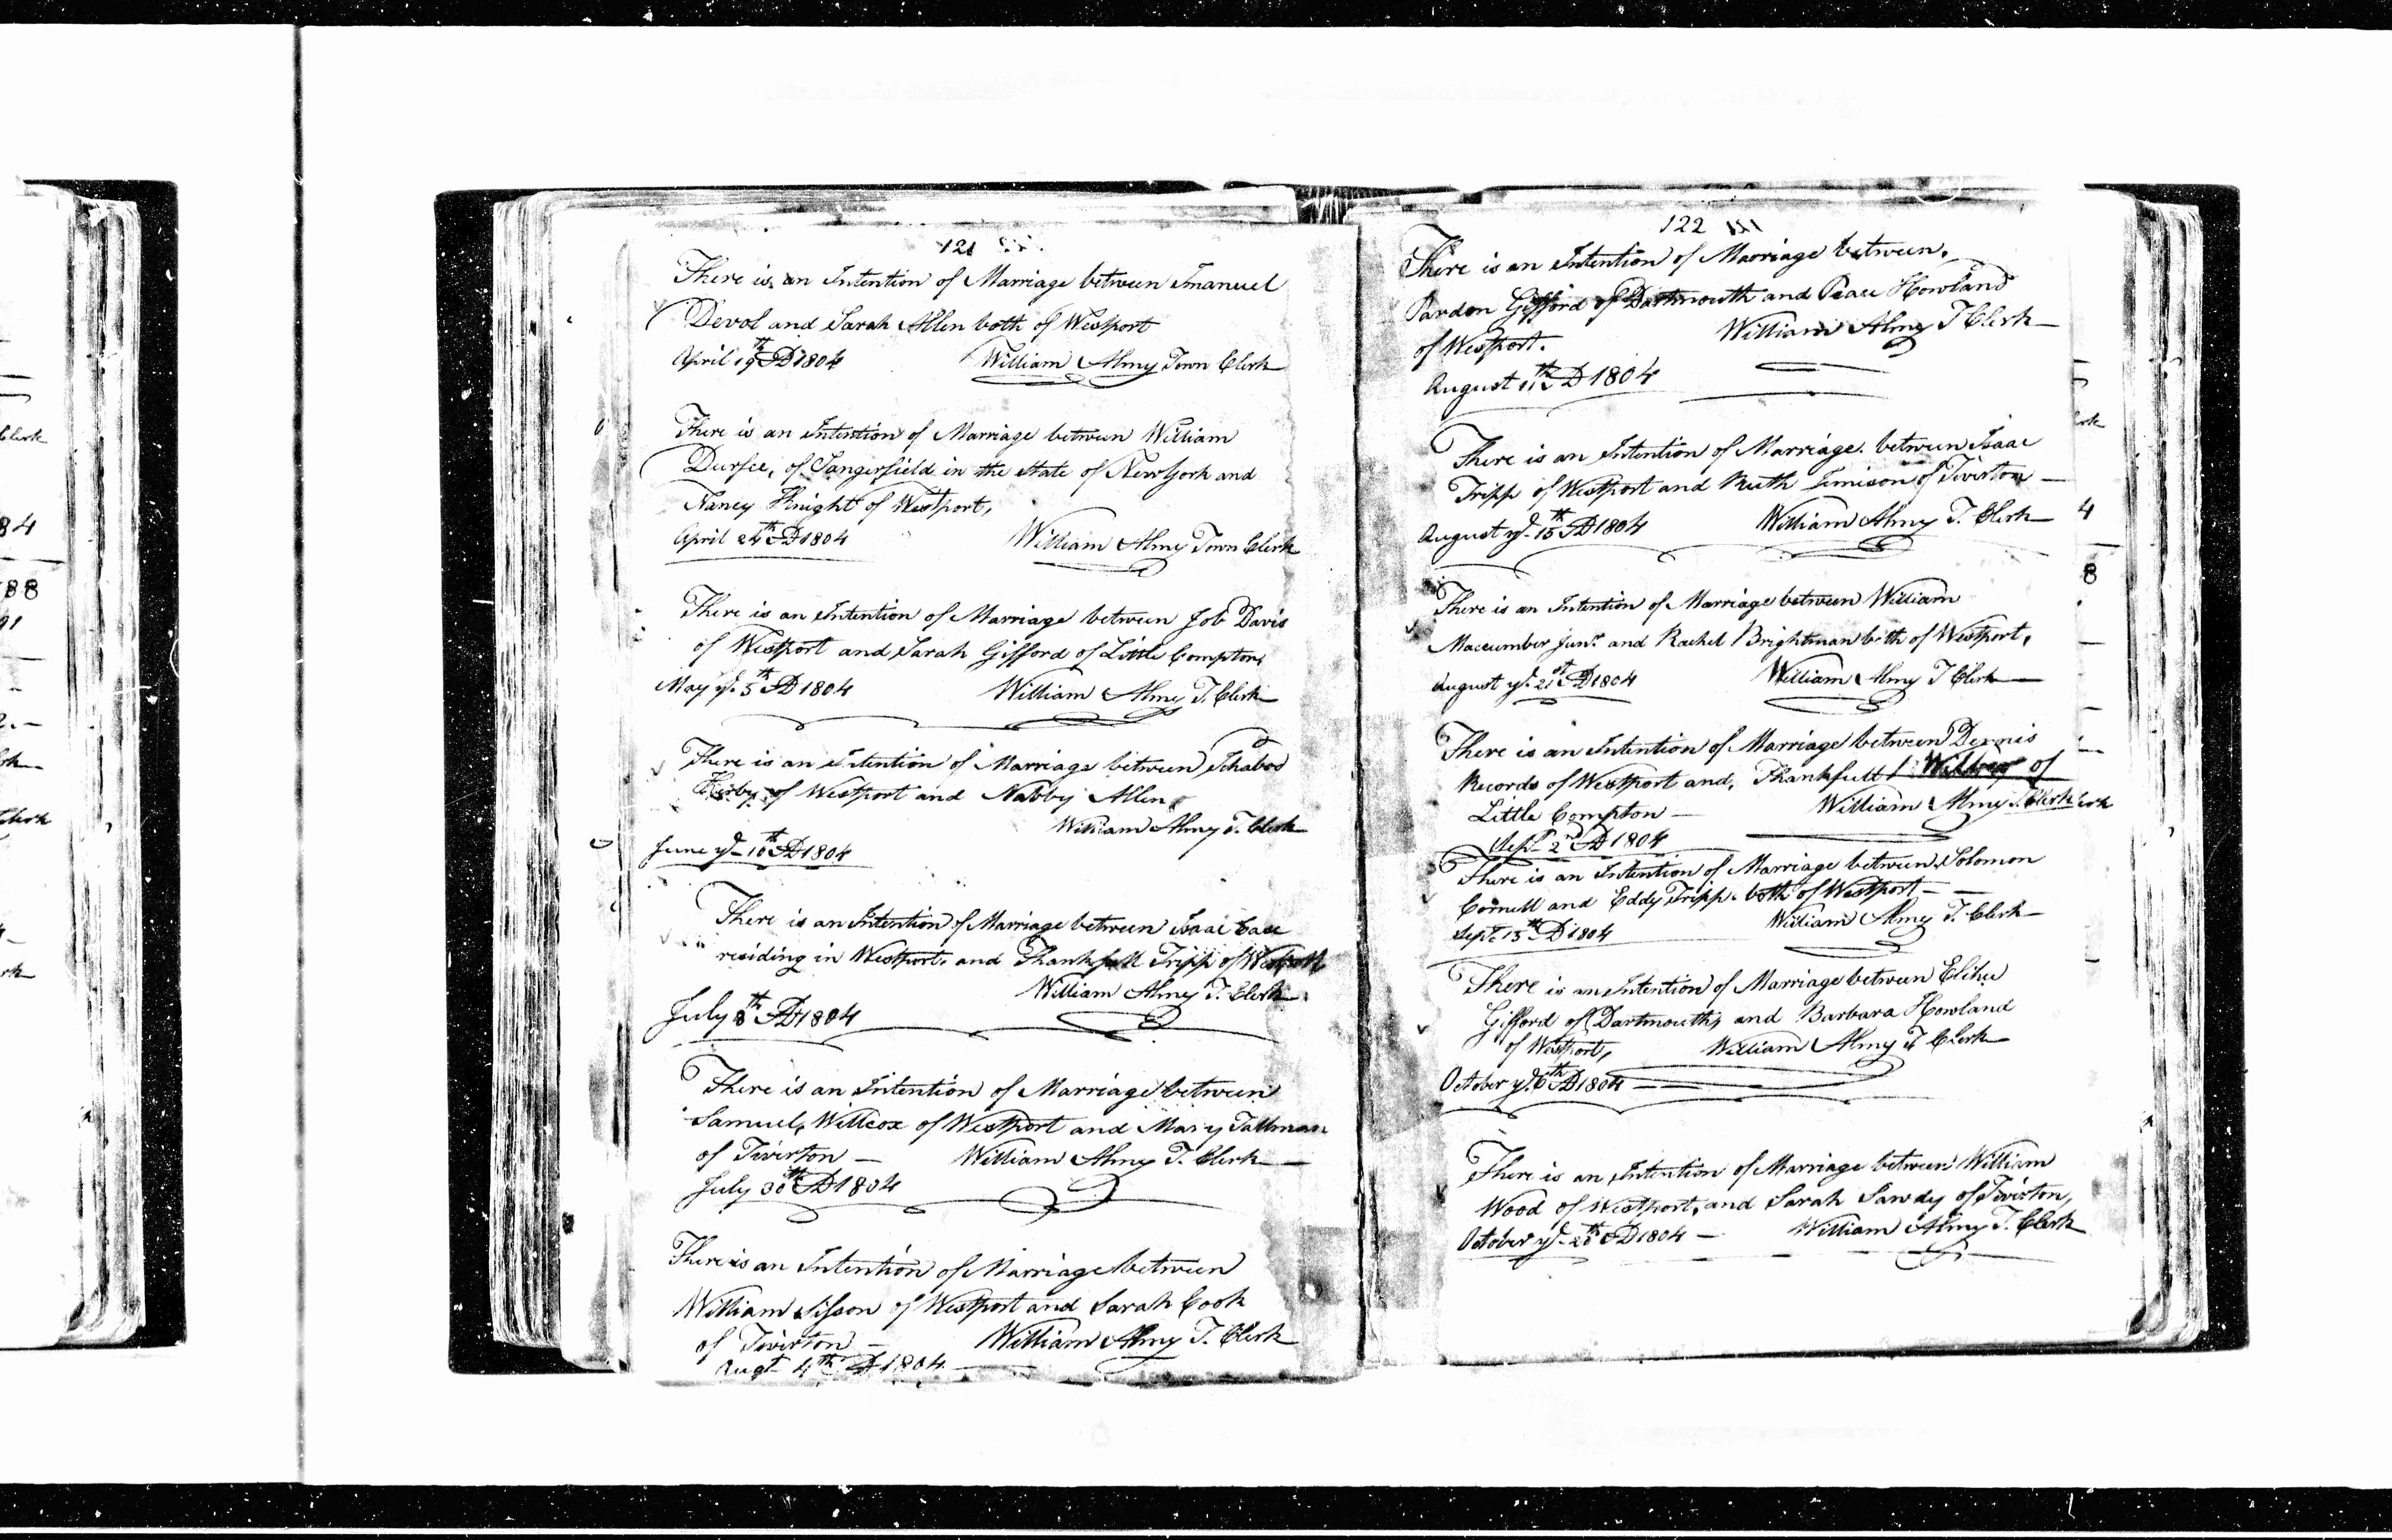 121
There is an Intention of Marriage between Imanuel
Devol and Sarah Allen both of Westport
April 19th AD 1804 William Almy Town Clerk
There is an Intention of Marriage between William
Durfee, of Sangerfield in the State of New York and
Nancy Knight of Westport,
April 24th AD 1804 William Almy Town Clerk
There is an Intention of Marriage between Job Davis
of Westport and Sarah Gifford of Little Compton,
May ye 5th AD 1804 William Almy T. Clerk
There is an Intention of Marriage between Ichabod
Kirby of Westport and Nabby Allen,
William Almy T. Clerk
June ye 10th AD 1804
There is an Intention of Marriage between Isaac Case
residing in Westport, and Thankfull Tripp of Westport
William Almy T. Clerk
July 8th AD 1804
There is an Intention of Marriage between
Samuel Willcox of Westport and Mary Tallman
of Tiverton — William Almy T. Clerk —
July 30th AD 1804
There is an Intention of Marriage between
William Sisson of Westport and Sarah Cook
of Tiverton — William Almy T. Clerk
Augt 4th AD 1804
122
There is an Intention of Marriage between
Pardon Gifford of Dartmouth and Peace Howland
of Westport. William Almy T Clerk —
August 11th AD 1804
There is an Intention of Marriage between Isaac
Tripp of Westport and Ruth of Tiverton —
August ye 15th AD 1804 William Almy T. Clerk
There is an Intention of Marriage between William
Maccumber Junr and Rachel Brightman both of Westport,
August ye 21st AD 1804 William Almy T Clerk —
There is an Intention of Marriage between Dennis
Records of Westport and, Thankfull of
Little Compton — William Almy T. Clerk
Sept 2nd AD 1804
There is an Intention of Marriage between Solomon
Cornell and Eddy Tripp both of Westport —
Sept 15th AD 1804 William Almy T. Clerk
There is an Intention of Marriage between Elihu
Gifford of Dartmouth, and Barbara Howland
of Westport, William Almy T Clerk
October ye 6th AD 1804 —
There is an Intention of Marriage between William
Wood of Westport, and Sarah Sawdy of Tiverton,
October ye 20th AD 1804 — William Almy T. Clerk